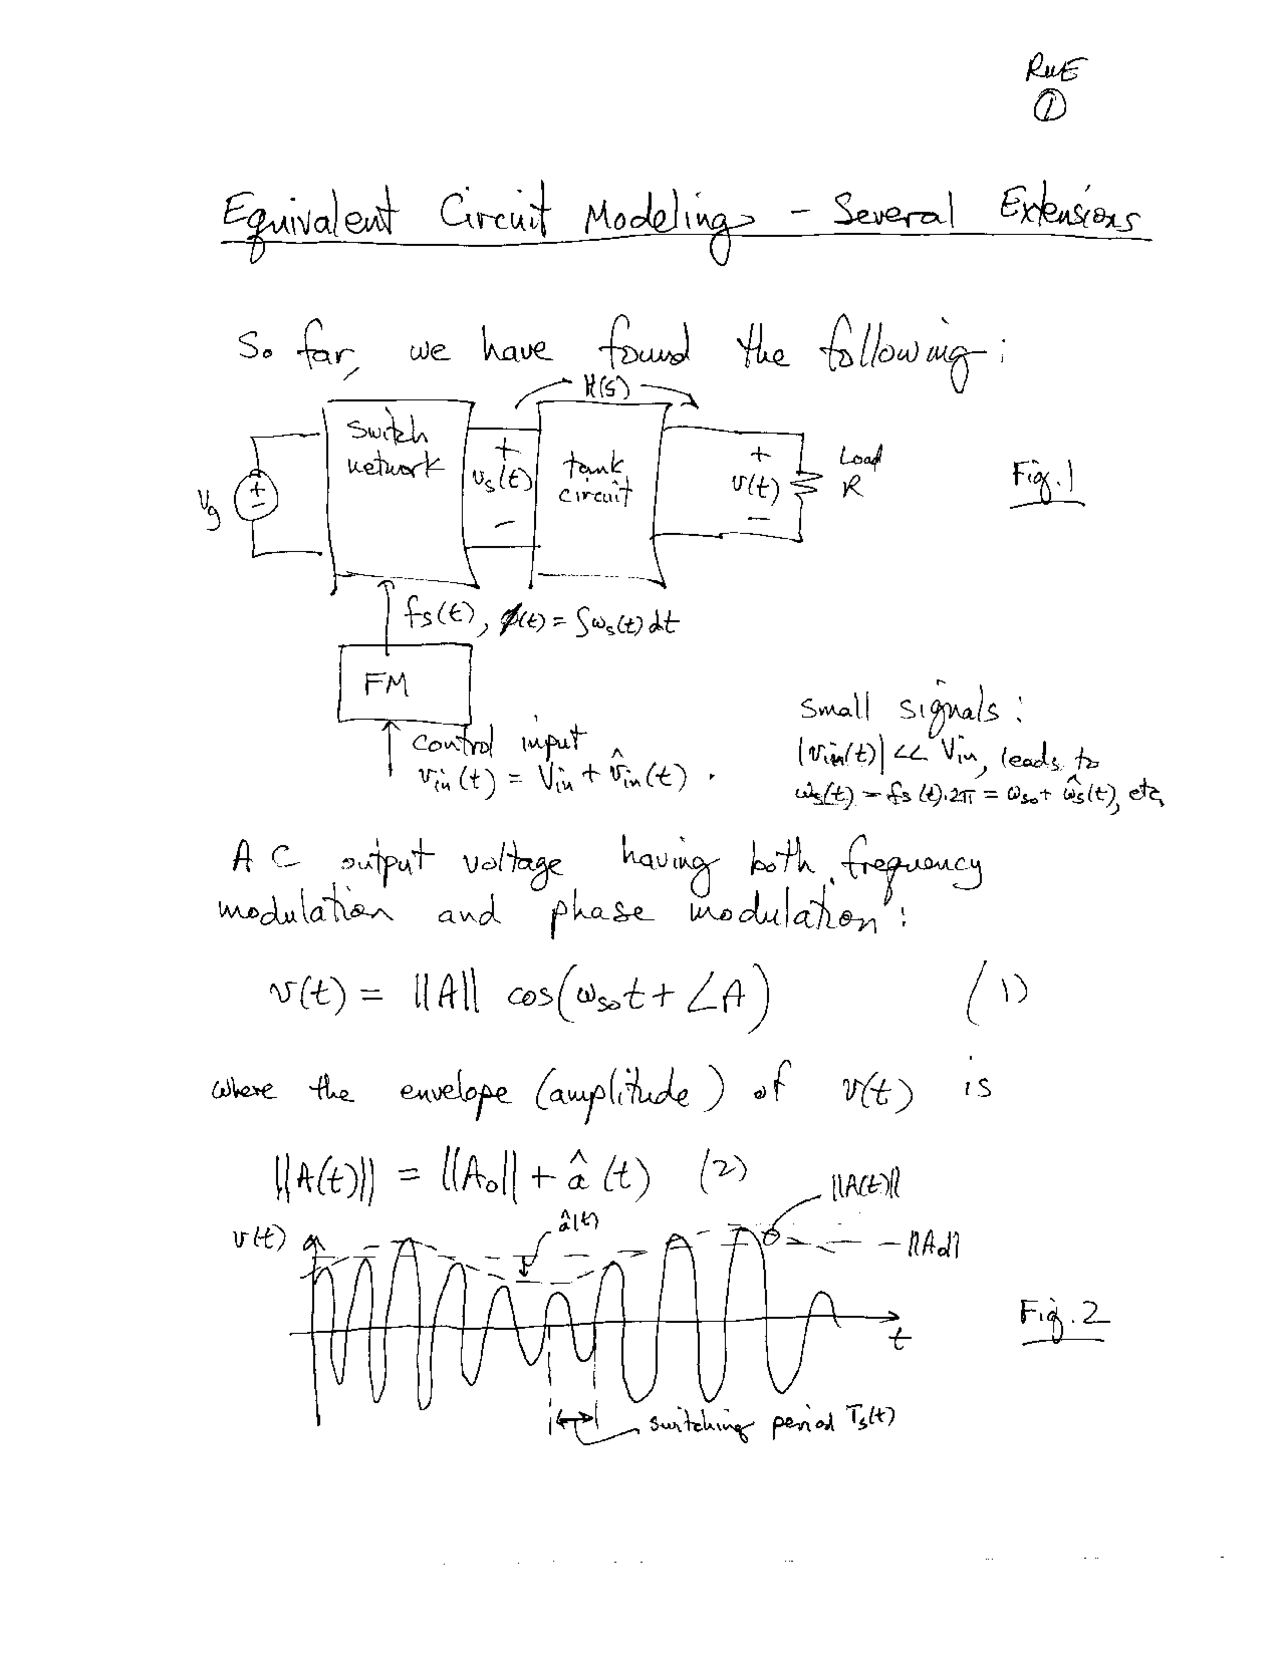 RWE
1
Equivalent Circuit Modeling - Several Extensions
So far, we have found the following:
H(s)
Switch network
+ vs(t) −
tank circuit
+ v(t) −
Load R
Vg
+ −
Fig. 1
fs(t), φ(t) = ∫ωs(t)dt
FM
control input
vin(t) = Vin + v̂in(t).
Small signals:
|vin(t)| << Vin, leads to
ωs(t) = fs(t)·2π = ωso + ω̂s(t), etc,
AC output voltage having both frequency
modulation and phase modulation:
v(t) = ||A|| cos(ωsot + ∠A) (1)
where the envelope (amplitude) of v(t) is
||A(t)|| = ||A0|| + â(t) (2)
||A(t)||
v(t)
â(t)
||A0||
t
Fig. 2
switching period Ts(t)